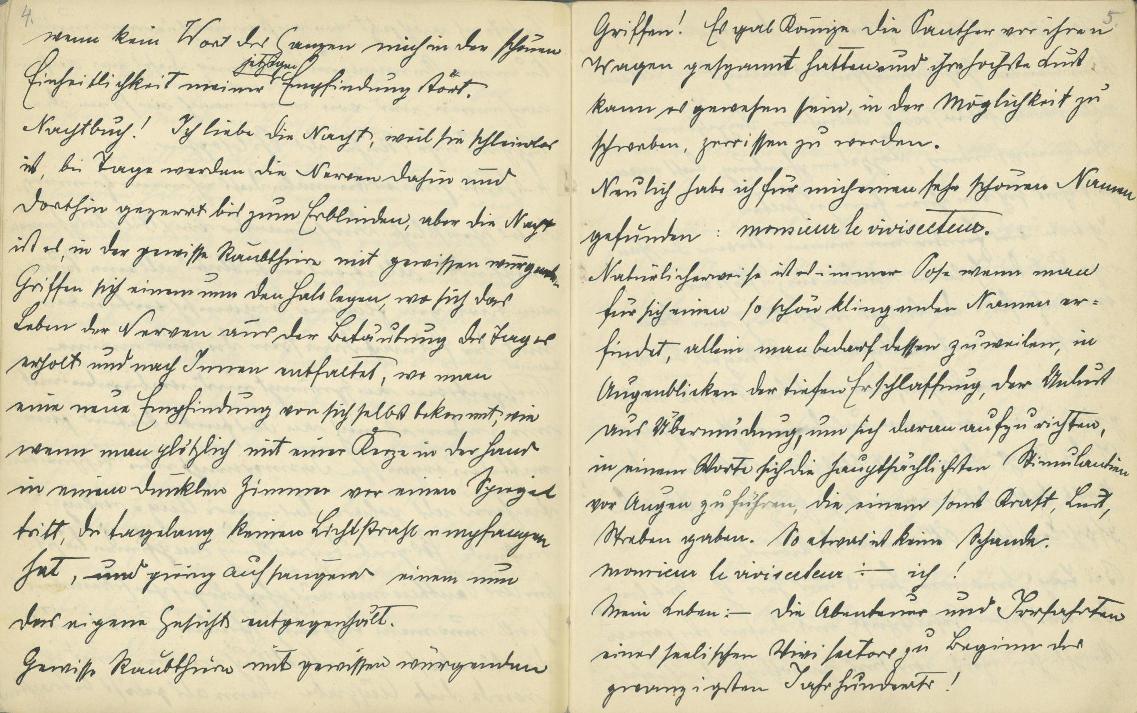 4.
wenn kein Wort des Ganzen mich in der schönen
jetzigen
Einheitlichkeit meiner Empfindung stört.
Nachtbuch! Ich liebe die Nacht, weil sie schleierlos
ist, bei Tage werden die Nerven dahin und
dorthin gezerrt bis zum Erblinden, aber die Nacht
ist es, in der gewisse Raubthiere mit gewissen würgenden
Griffen sich einem um den Hals legen, wo sich das
Leben der Nerven aus der Betäubung des Tages
erholt und nach Innen entfaltet, wo man
eine neue Empfindung von sich selbst bekommt, wie
wenn man plötzlich mit einer Kerze in der Hand
in einem dunklen Zimmer vor einen Spiegel
tritt, der tagelang keinen Lichtstrahl empfangen
hat, und gierig aufsaugend einem nun
das eigene Gesicht entgegenhält.
Gewisse Raubthiere mit gewissen würgenden
5.
Griffen! Es gab Könige die Panther vor ihren
Wagen gespannt hatten und ihre höchste Lust
kann es gewesen sein, in der Möglichkeit zu
schweben, zerrissen zu werden.
Neulich habe ich für mich einen sehr schönen Namen
gefunden: monsieur le vivisecteur.
Natürlicherweise ist es immer Pose wenn man
für sich einen so schön klingenden Namen er=
findet, allein man bedarf dessen zuweilen, in
Augenblicken der tiefen Erschlaffung, der Unlust
aus Übermüdung, um sich daran aufzurichten,
in einem Worte sich die hauptsächlichsten Stimulantien
vor Augen zu führen, die einem sonst Kraft, Lust,
Streben gaben. So etwas ist keine Schande.
monsieur le vivisecteur :— ich!
Mein Leben:— Die Abenteuer und Irrfahrten
eines seelischen Vivisectors zu Beginn des
zwanzigsten Jahrhunderts!